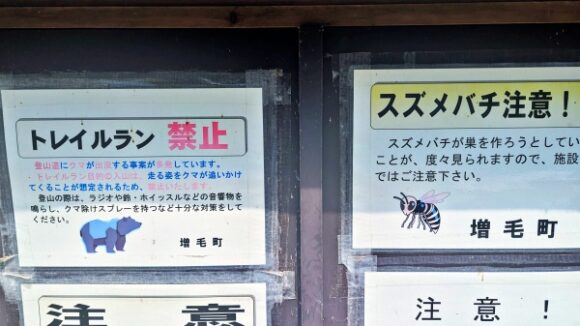 トレイルラン 禁止
登山道にクマが出没する事案が多発しています。
・トレイルラン目的の入山は、走る姿をクマが追いかけ
てくることが想定されるため、禁止いたします。
登山の際は、ラジオや鈴・ホイッスルなどの音響物を
鳴らし、クマ除けスプレーを持つなど十分な対策をして
ください。
増毛町
注意
スズメバチ注意！
スズメバチが巣を作ろうとしてい
ことが、度々見られますので、施設
ではご注意下さい。
増毛町
注意！